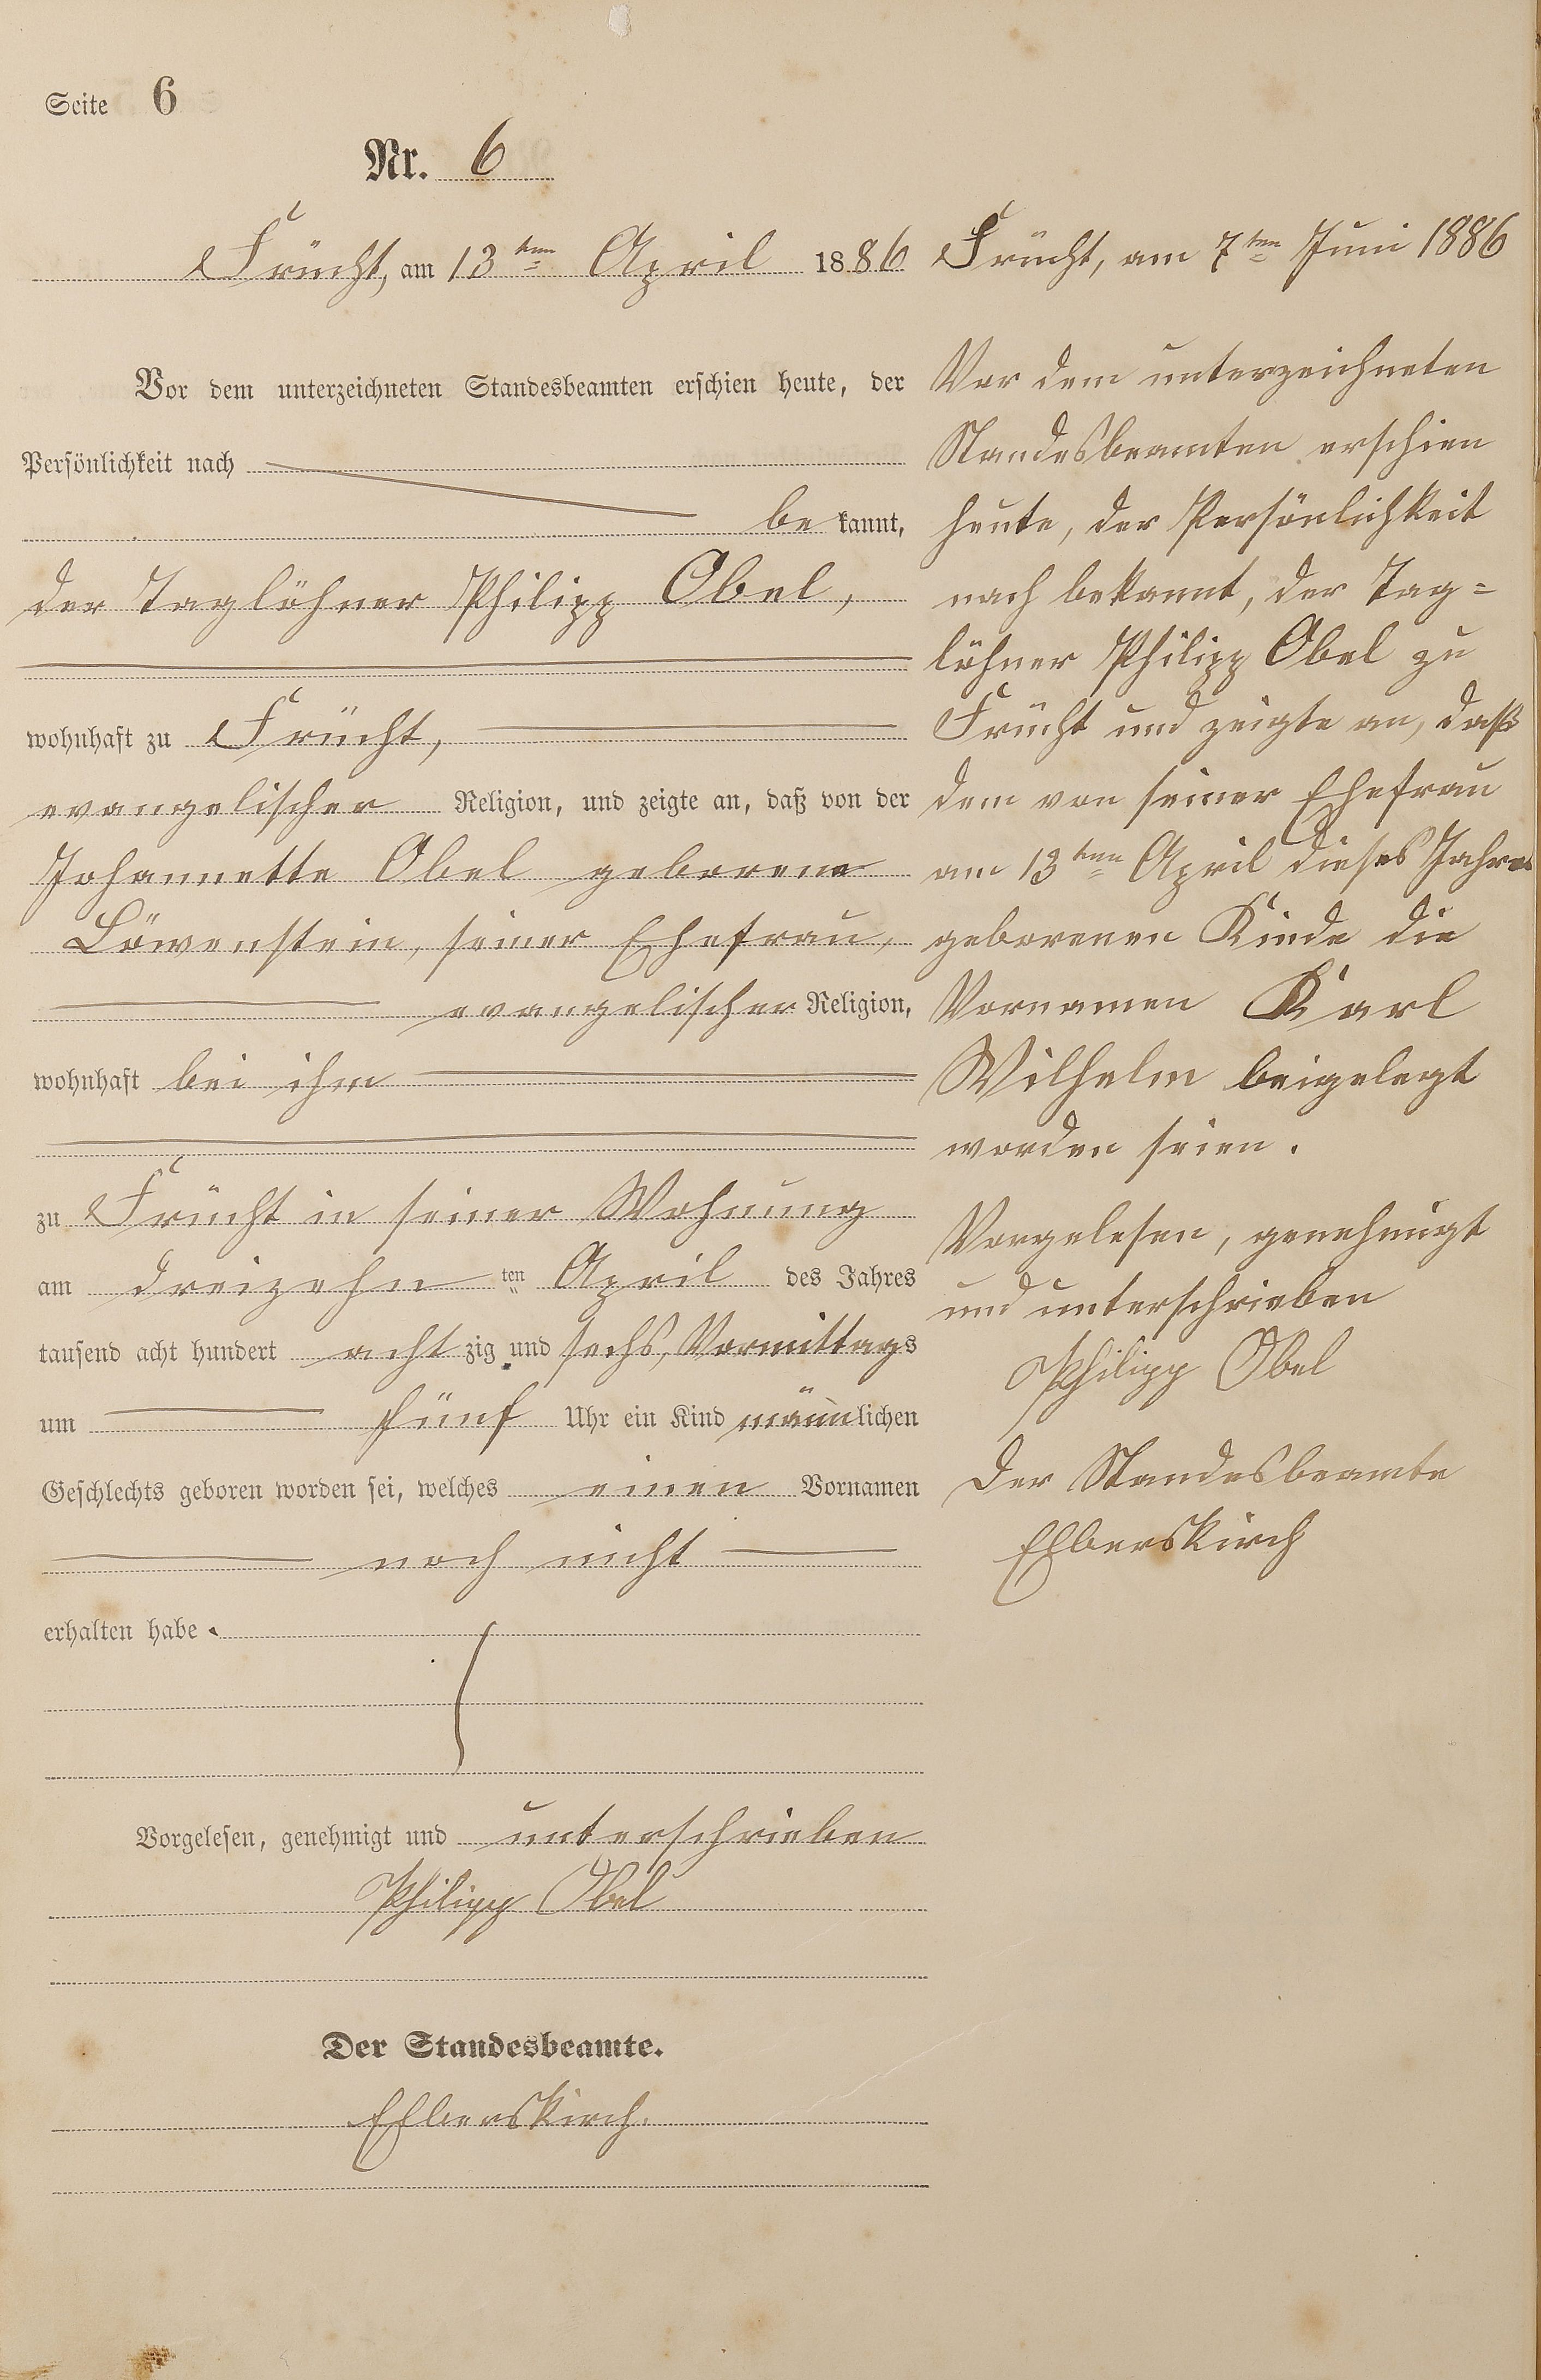 Seite 6
Nr. 6
Frücht, am 13ten April 1886
Vor dem unterzeichneten Standesbeamten erschien heute, der
Persönlichkeit nach
be kannt,
der Taglöhner Philipp Obel,
wohnhaft zu Frücht,
evangelischer Religion, und zeigte an, daß von der
Johannette Obel geborene
Löwenstein, seiner Ehefrau,
evangelischer Religion,
wohnhaft bei ihm
zu Frücht in seiner Wohnung
am dreizehn ten April des Jahres
tausend acht hundert acht zig und sechs, Vormittags
um fünf Uhr ein Kind männlichen
Geschlechts geboren worden sei, welches einen Vornamen
noch nicht
erhalten habe.
Vorgelesen, genehmigt und unterschrieben
Philipp Obel
Der Standesbeamte.
Elberskirch.
Frücht, am 7ten Juni 1886
Vor dem unterzeichneten
Standesbeamten erschien
heute, der Persönlichkeit
nach bekannt, der Tag=
löhner Philipp Obel zu
Frücht und zeigte an, daß
dem von seiner Ehefrau
am 13ten April dieses Jahres
geborenen Kinde die
Vornamen Karl
Wilhelm beigelegt
worden seien.
Vorgelesen, genehmigt
und unterschrieben
Philipp Obel
Der Standesbeamte
Elberskirch